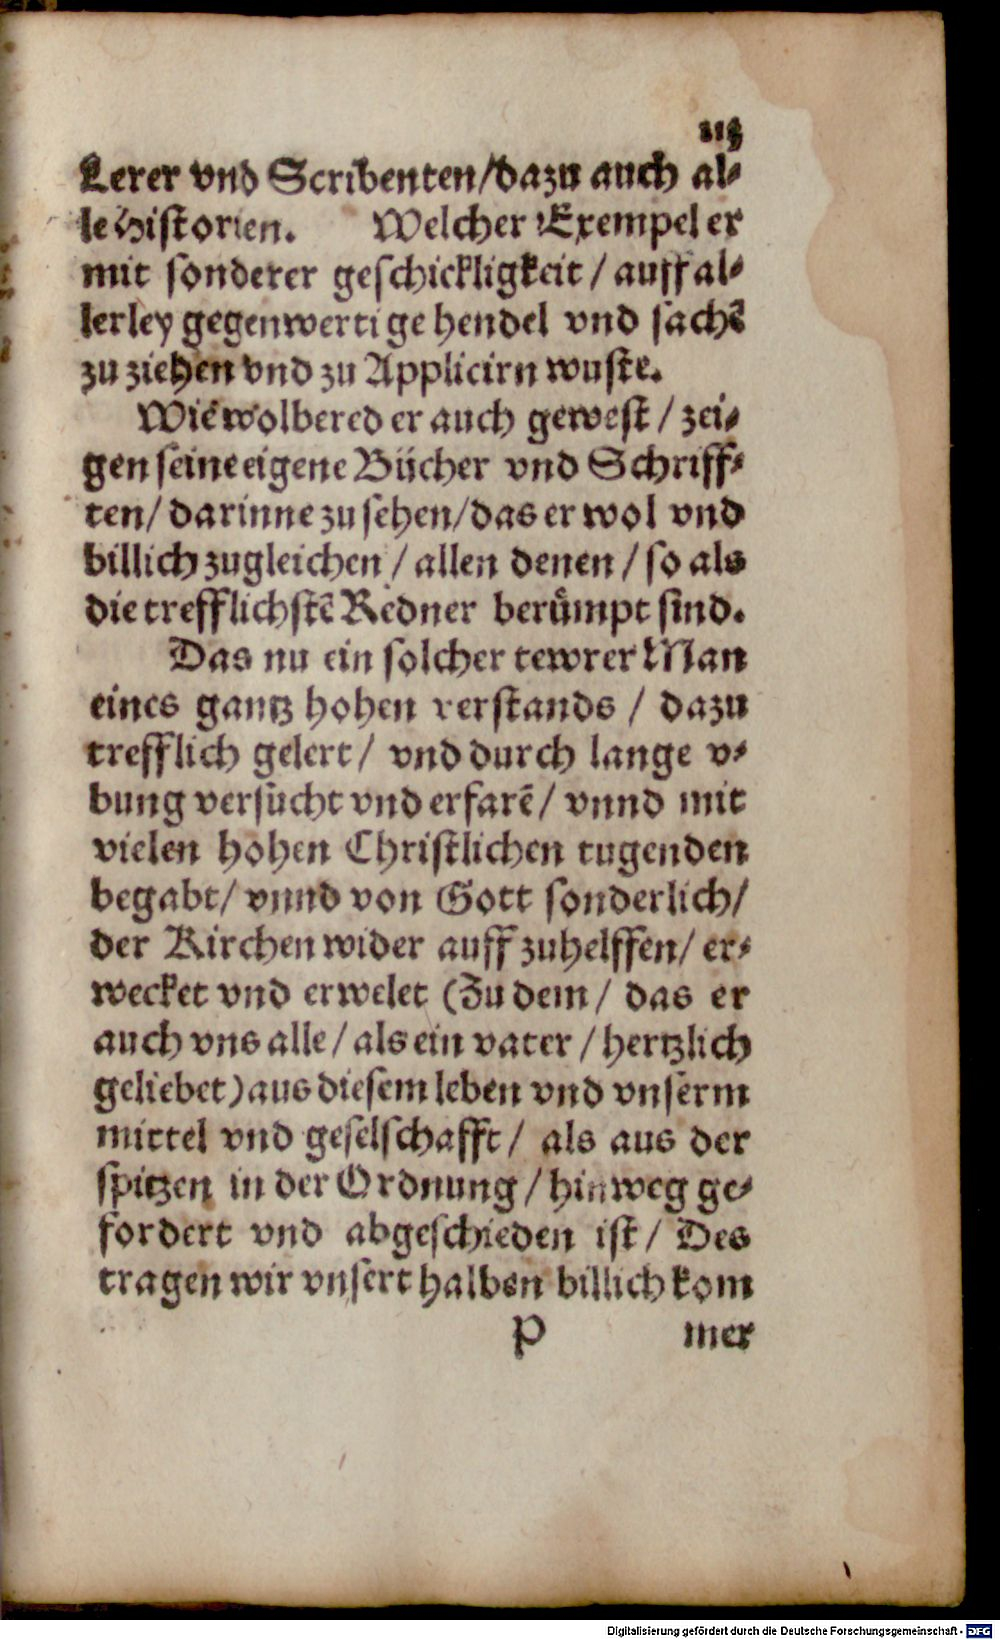 113
Lerer vnd Scribenten/dazu auch al⸗
le Historien. Welcher Exempel er
mit sonderer geschickligkeit / auff al⸗
lerley gegenwertige hendel vnd sachē
zu ziehen vnd zu Applicirn wuste.
Wie wolbered er auch gewest / zei⸗
gen seine eigene Bücher vnd Schriff⸗
ten/ darinne zu sehen/das er wol vnd
billich zugleichen / allen denen / so als
die trefflichstē Redner berümpt sind.
Das nu ein solcher tewrer Man
eines gantz hohen verstands / dazu
trefflich gelert/ vnd durch lange v⸗
bung versucht vnd erfarē/ vnnd mit
vielen hohen Christlichen tugenden
begabt/ vnnd von Gott sonderlich/
der Kirchen wider auff zuhelffen/ er⸗
wecket vnd erwelet (Zu dem/ das er
auch vns alle/ als ein vater / hertzlich
geliebet) aus diesem leben vnd vnserm
mittel vnd geselschafft/ als aus der
spitzen in der Ordnung / hinweg ge⸗
fordert vnd abgeschieden ist/ Des
tragen wir vnsert halben billich kom
P mer
Digitalisierung gefördert durch die Deutsche Forschungsgemeinschaft - DFG